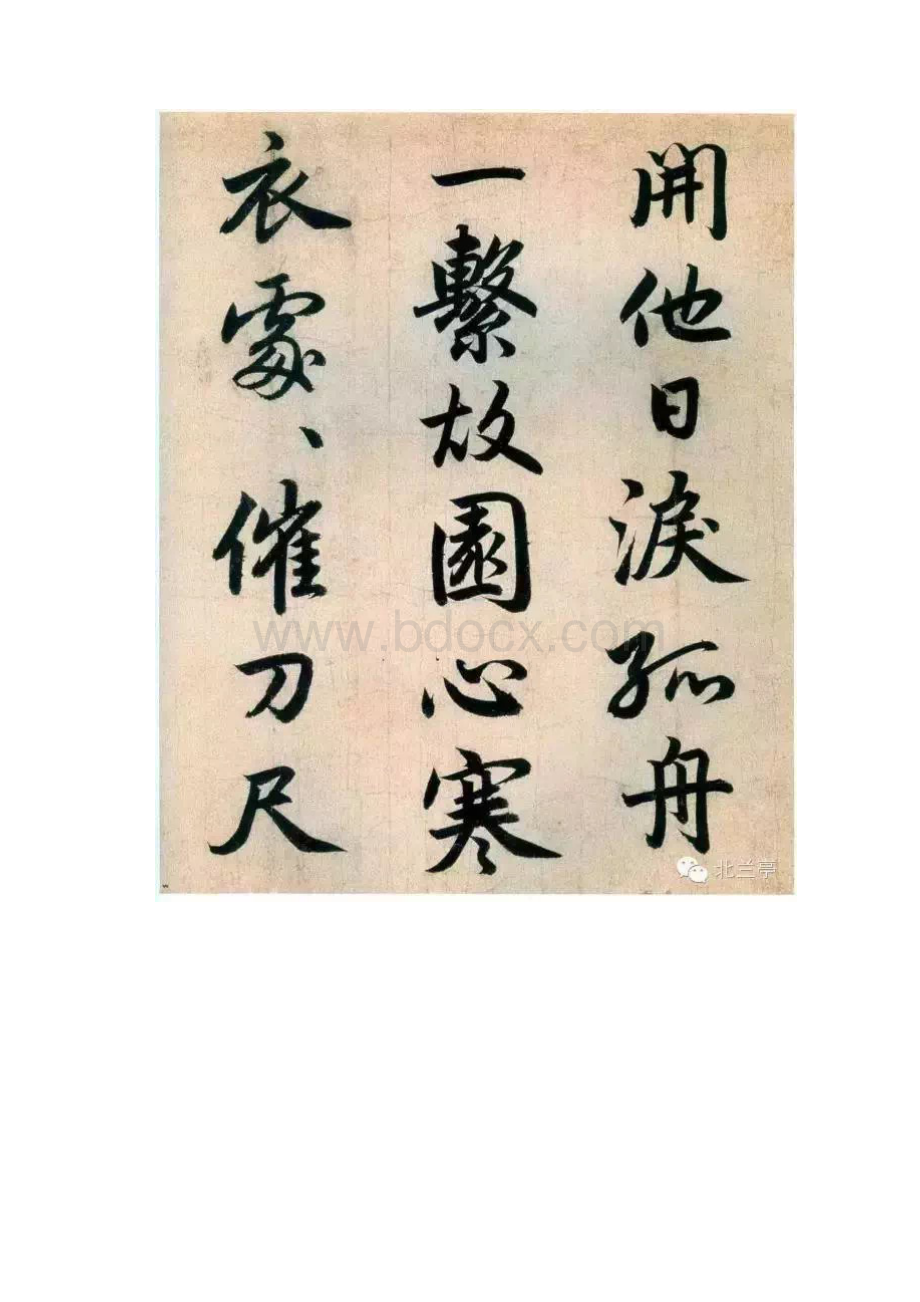 開他日淚孤舟
一繫故園心寒
衣處〻催刀尺
www.bdocx.com
北兰亭